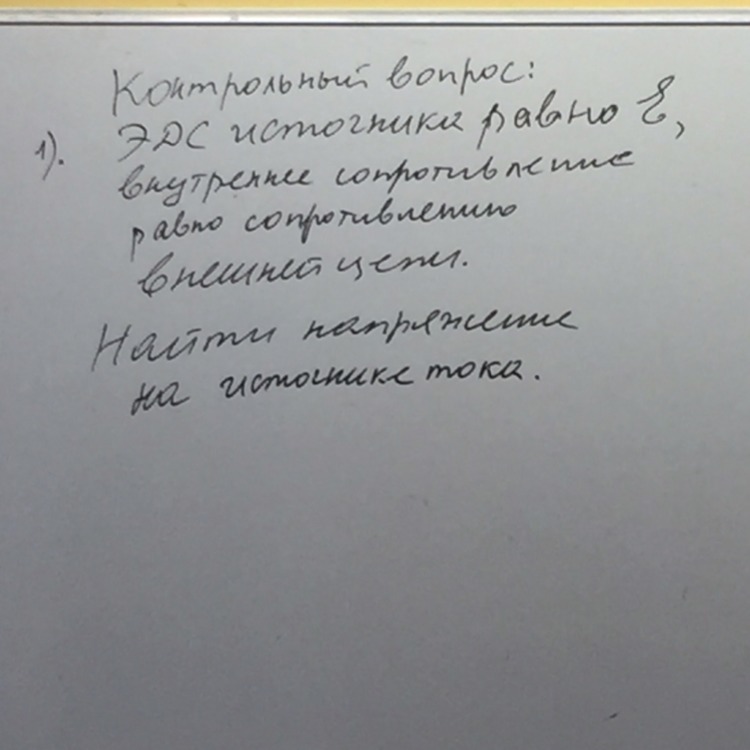 Контрольный вопрос:
1). ЭДС источника равно Ɛ,
внутреннее сопротивление
равно сопротивлению
внешней цепи.
Найти напряжение
на источнике тока.